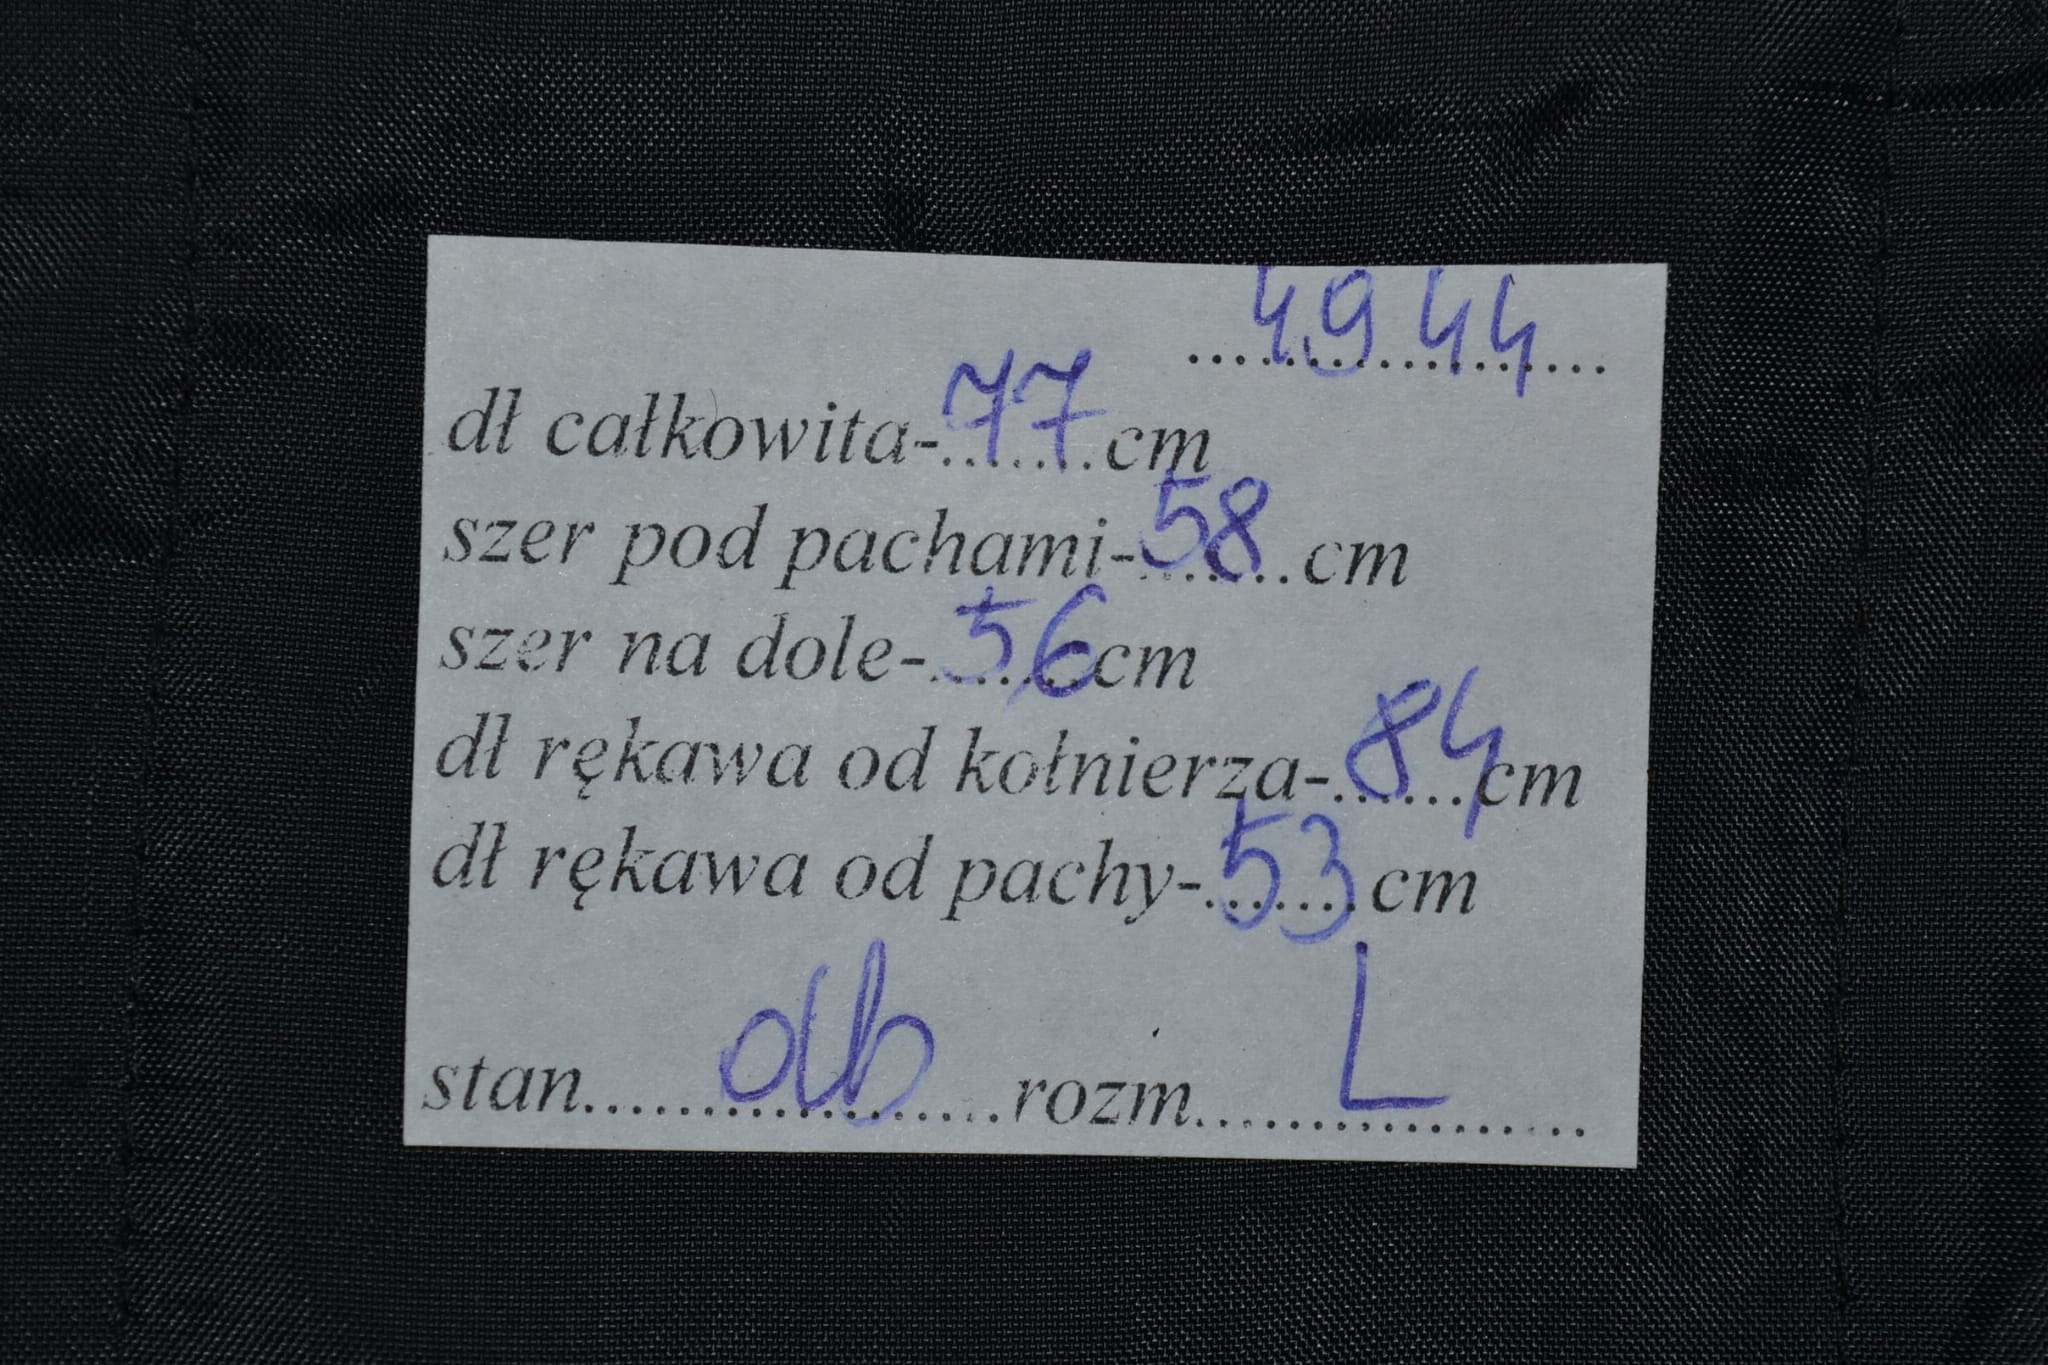 4944
dł całkowita-77cm
szer pod pachami-58cm
szer na dole-56cm
dł rękawa od kołnierza-84cm
dł rękawa od pachy-53cm
stan db rozm L